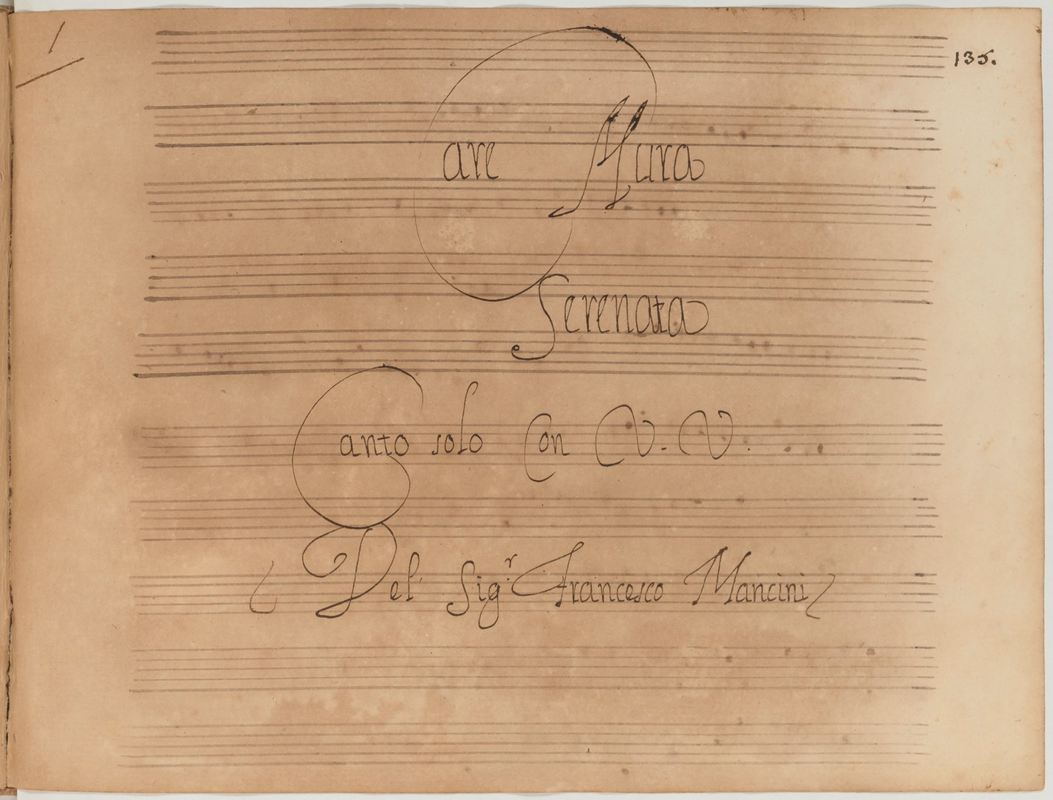 1
135.
Care Mura
Serenata
Canto solo Con V. V.
Del Sig.r Francesco Mancini